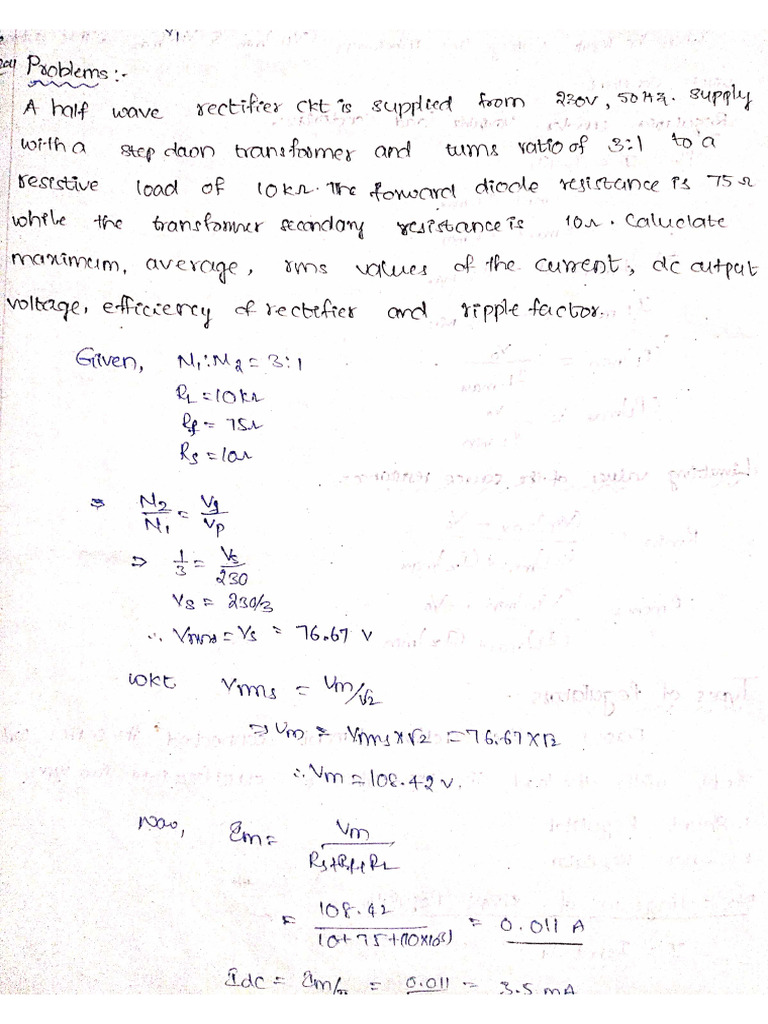 Problems:-
A half wave rectifier ckt is supplied from 230V, 50Hz. supply
with a step daon transformer and turns ratio of 3:1 to a
resistive load of 10kΩ. The forward diode resistance is 75Ω
while the transformer secondary resistance is 10Ω. Caluclate
maximum, average, rms values of the current, dc output
voltage, efficiency of rectifier and ripple factor.
Given, N1:N2 = 3:1
RL = 10kΩ
Rf = 75Ω
Rs = 10Ω
⇒ N2/N1 = Vs/Vp
⇒ 1/3 = Vs/230
Vs = 230/3
∴ Vrms = Vs = 76.67 V
wkt Vrms = Vm/√2
⇒ Vm = Vrms×√2 = 76.67×√2
∴ Vm = 108.42 V.
Now, Im = Vm/(Rs+Rf+RL)
= 108.42/(10+75+(10×10³)) = 0.011 A
Idc = Im/π = 0.011 = 3.5 mA